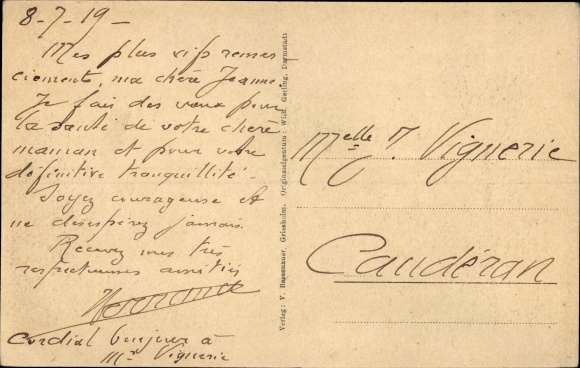 8-7-19-
Mes plus vifs remer
ciements, ma chère Jeanne.
Je fais des vœux pour
la santé de votre chère
maman et pour votre
définitive tranquillité.
Soyez courageuse et
ne désespérez jamais.
Recevez mes très
respectueuses amitiés
Cordial bonjour à
Mr Vignerie
Verlag: V. Griesheim. Originaleigentum: Wilh. Gerling, Darmstadt
Melle J. Vignerie
Caudéran